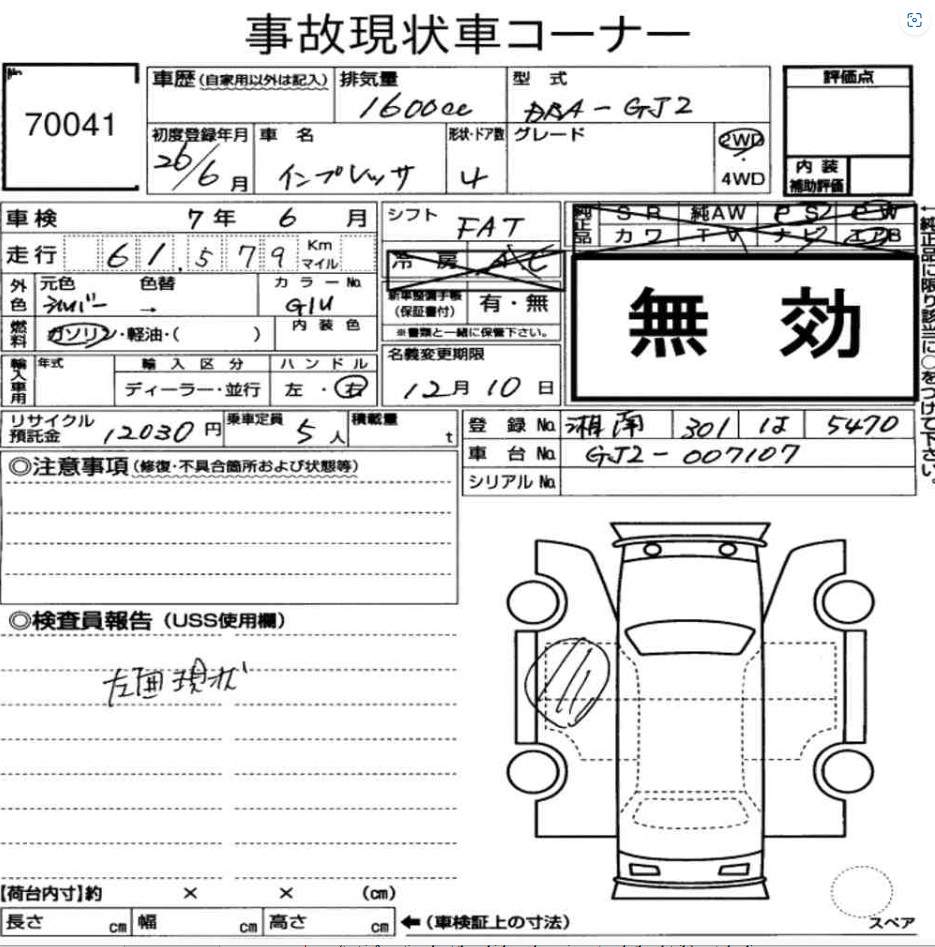 事故現状車コーナー
No. 70041
車歴(自家用以外は記入)
排気量 1600cc
型式 DBA-GJ2
評価点
初度登録年月 26/6月
車名 インプレッサ
形状・ドア数 4
グレード
2WD
4WD
内装
補助評価
車検 7年 6月
シフト FAT
純正品
SR 純AW PS PW
カワ TV ナビ エアB
走行 61,579 Km マイル
冷房 AC
外色 元色 シルバー 色替 →
カラーNo. G1U
新車整備手帳(保証書付) 有・無
※書類と一緒に保管下さい。
無効
燃料 ガソリン・軽油・( )
内装色
輸入車用 年式
輸入区分 ディーラー・並行
ハンドル 左・右
名義変更期限
12月10日
←純正品に限り該当に○をつけて下さい。
リサイクル預託金 12030円
乗車定員 5人
積載量 t
登録No. 湘南 301 は 5470
車台No. GJ2-007107
シリアルNo.
◎注意事項(修復・不具合箇所および状態等)
◎検査員報告(USS使用欄)
左面現状
【荷台内寸】約 × × (cm)
長さ cm 幅 cm 高さ cm ←(車検証上の寸法)
スペア